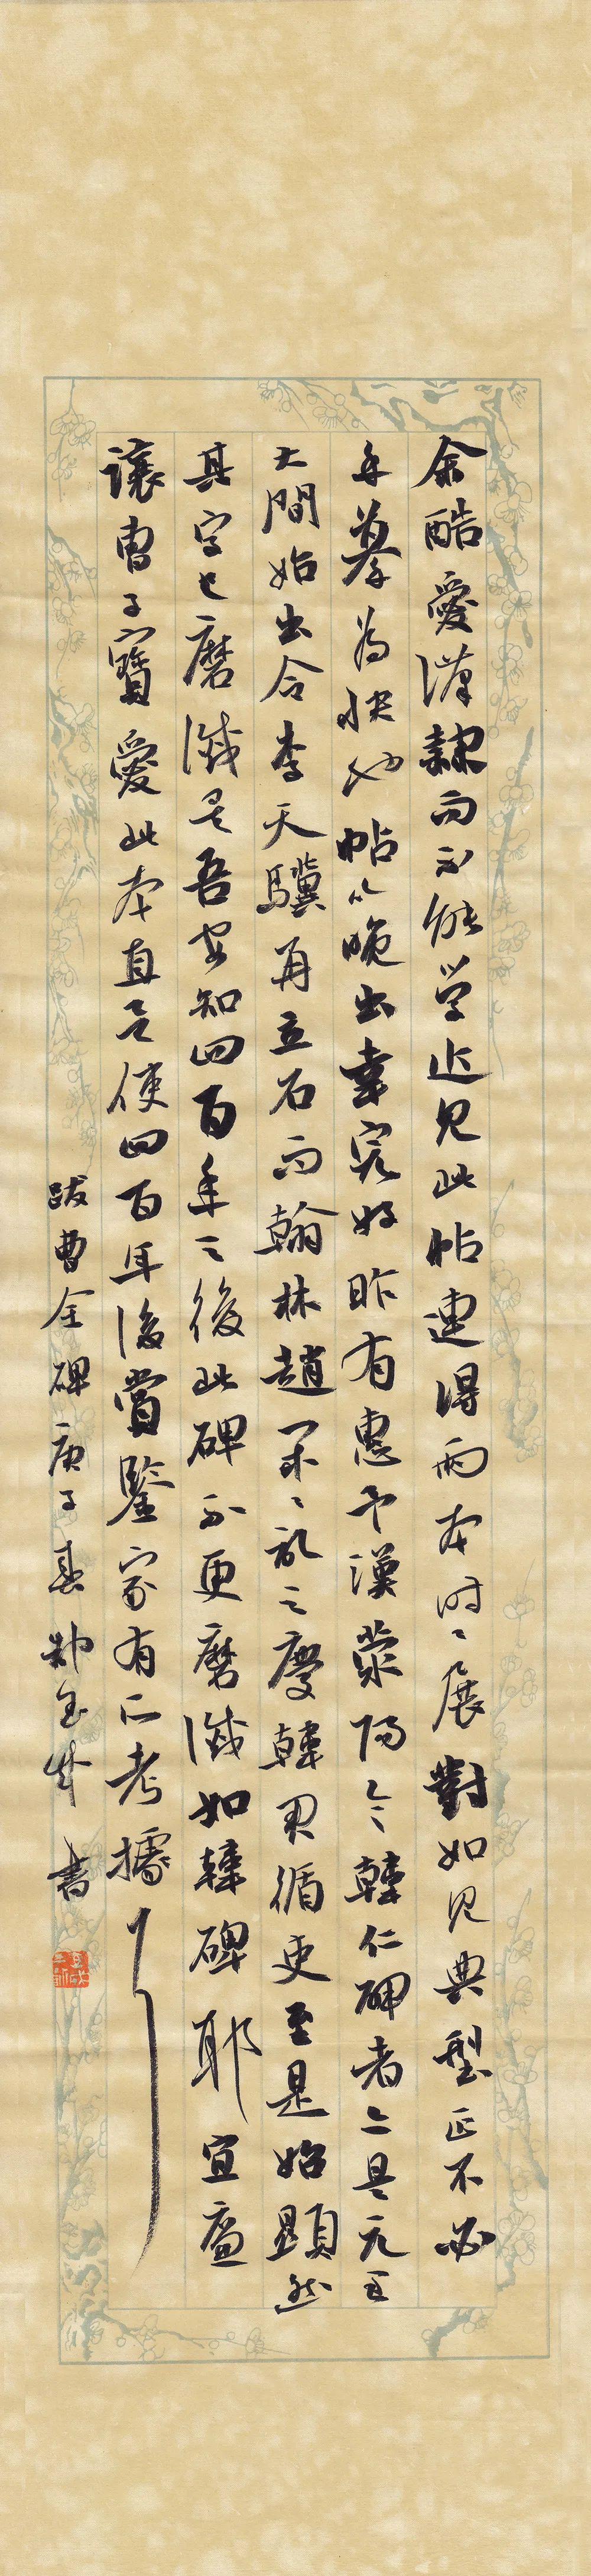 余酷愛漢隸而不能學近見此帖連得兩本時々展對如見典型正不必
手摹為快也帖以晚出幸完好昨有惠予漢滎陽令韓仁碑者亦是元至
大間始出令李天驥再立石而翰林趙閑々記之慶韓君循吏至是始顯然
其字已磨滅是吾安知四百年之後此碑不更磨滅如韓碑耶宜盧
讓曹子寶愛此本直是使四百年後賞鑒家有所考據耳
跋曹全碑庚子春鄭玉 書